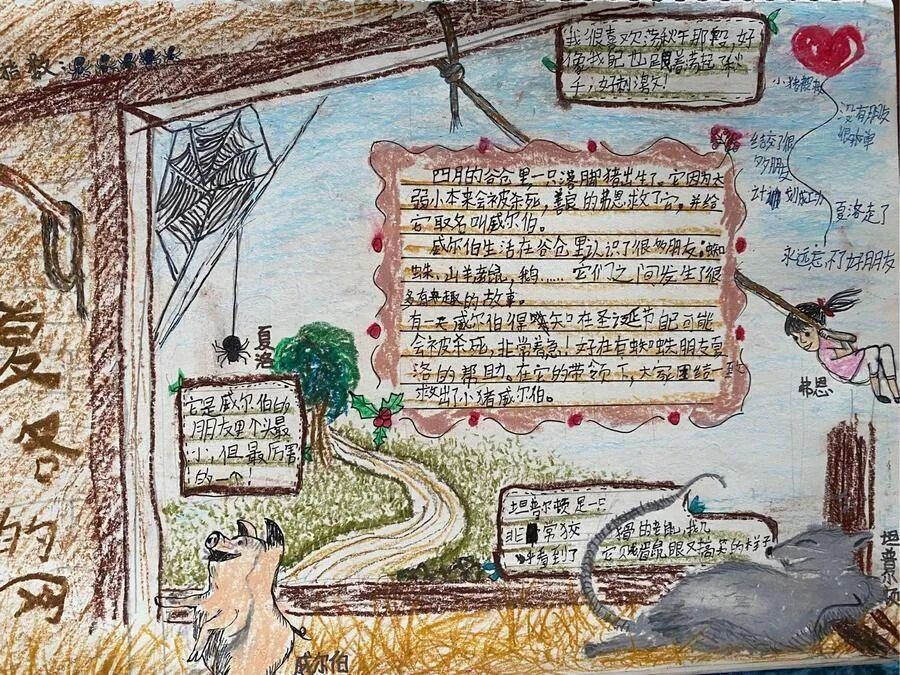 指数：
夏洛的网
我很喜欢荡秋千那段，好
像我自己也跟着荡起了秋
千，好刺激！
小猪威
没有朋友
很孤单
结交了很
多朋友
计划成功
夏洛走了
永远忘不了好朋友
四月的谷仓里一只落脚猪出生了。它因为太
弱小本来会被杀死，善良的弗恩救了它，并给
它取名叫威尔伯。
威尔伯生活在谷仓里认识了很多朋友：蜘
蛛，山羊，老鼠，鹅……它们之间发生了很
多有趣的故事。
有一天威尔伯得知在圣诞节自己可能
会被杀死，非常着急！好在有蜘蛛朋友夏
洛的帮助。在它的带领下，大家团结一致
救出了小猪威尔伯。
夏洛
它是威尔伯的
朋友里个头最
小，但最厉害
的一个！
弗恩
坦普尔顿是一只
非常狡猾的老鼠，我几
乎看到了它贼眉鼠眼又搞笑的样子
坦普尔顿
威尔伯